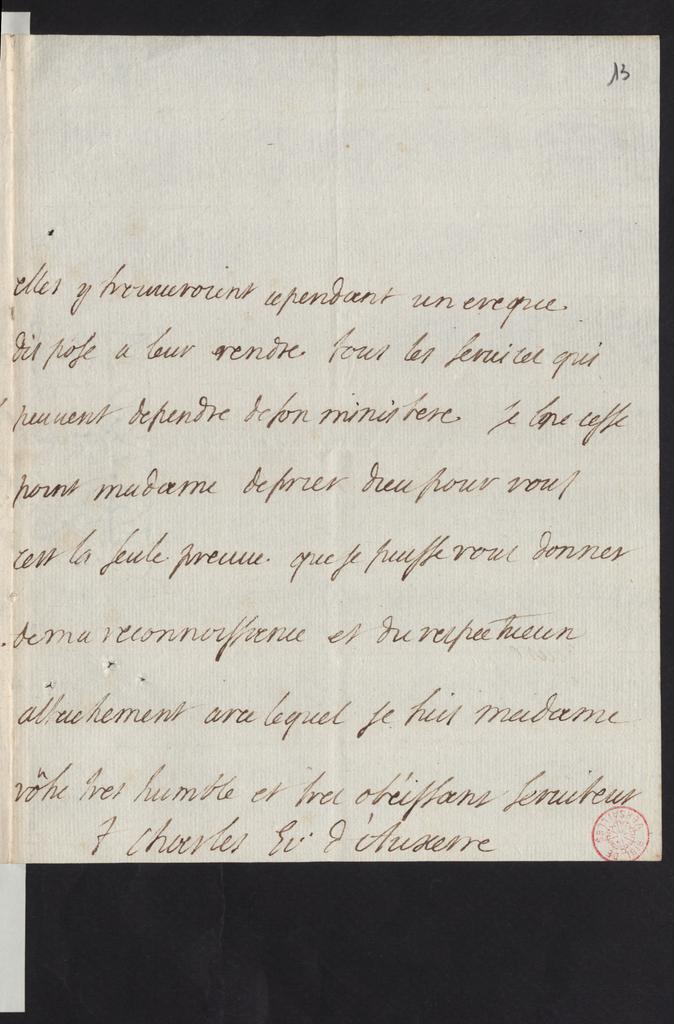 13
elles y trouuvroient cependant un eveque
dis posé a leur rendre tous les seruices qui
peuuent dependre de son ministere je ne cesse
point madame de prier dieu pour vous
cest la seule preuue que je puisse vous donner
de ma reconnoissance et du respectueux
attachement avec lequel je suis madame
vôtre tres humble et tres obéissant seruiteur
† Charles Ev. d'Auxerre
BIBL. DE VERSAILLES